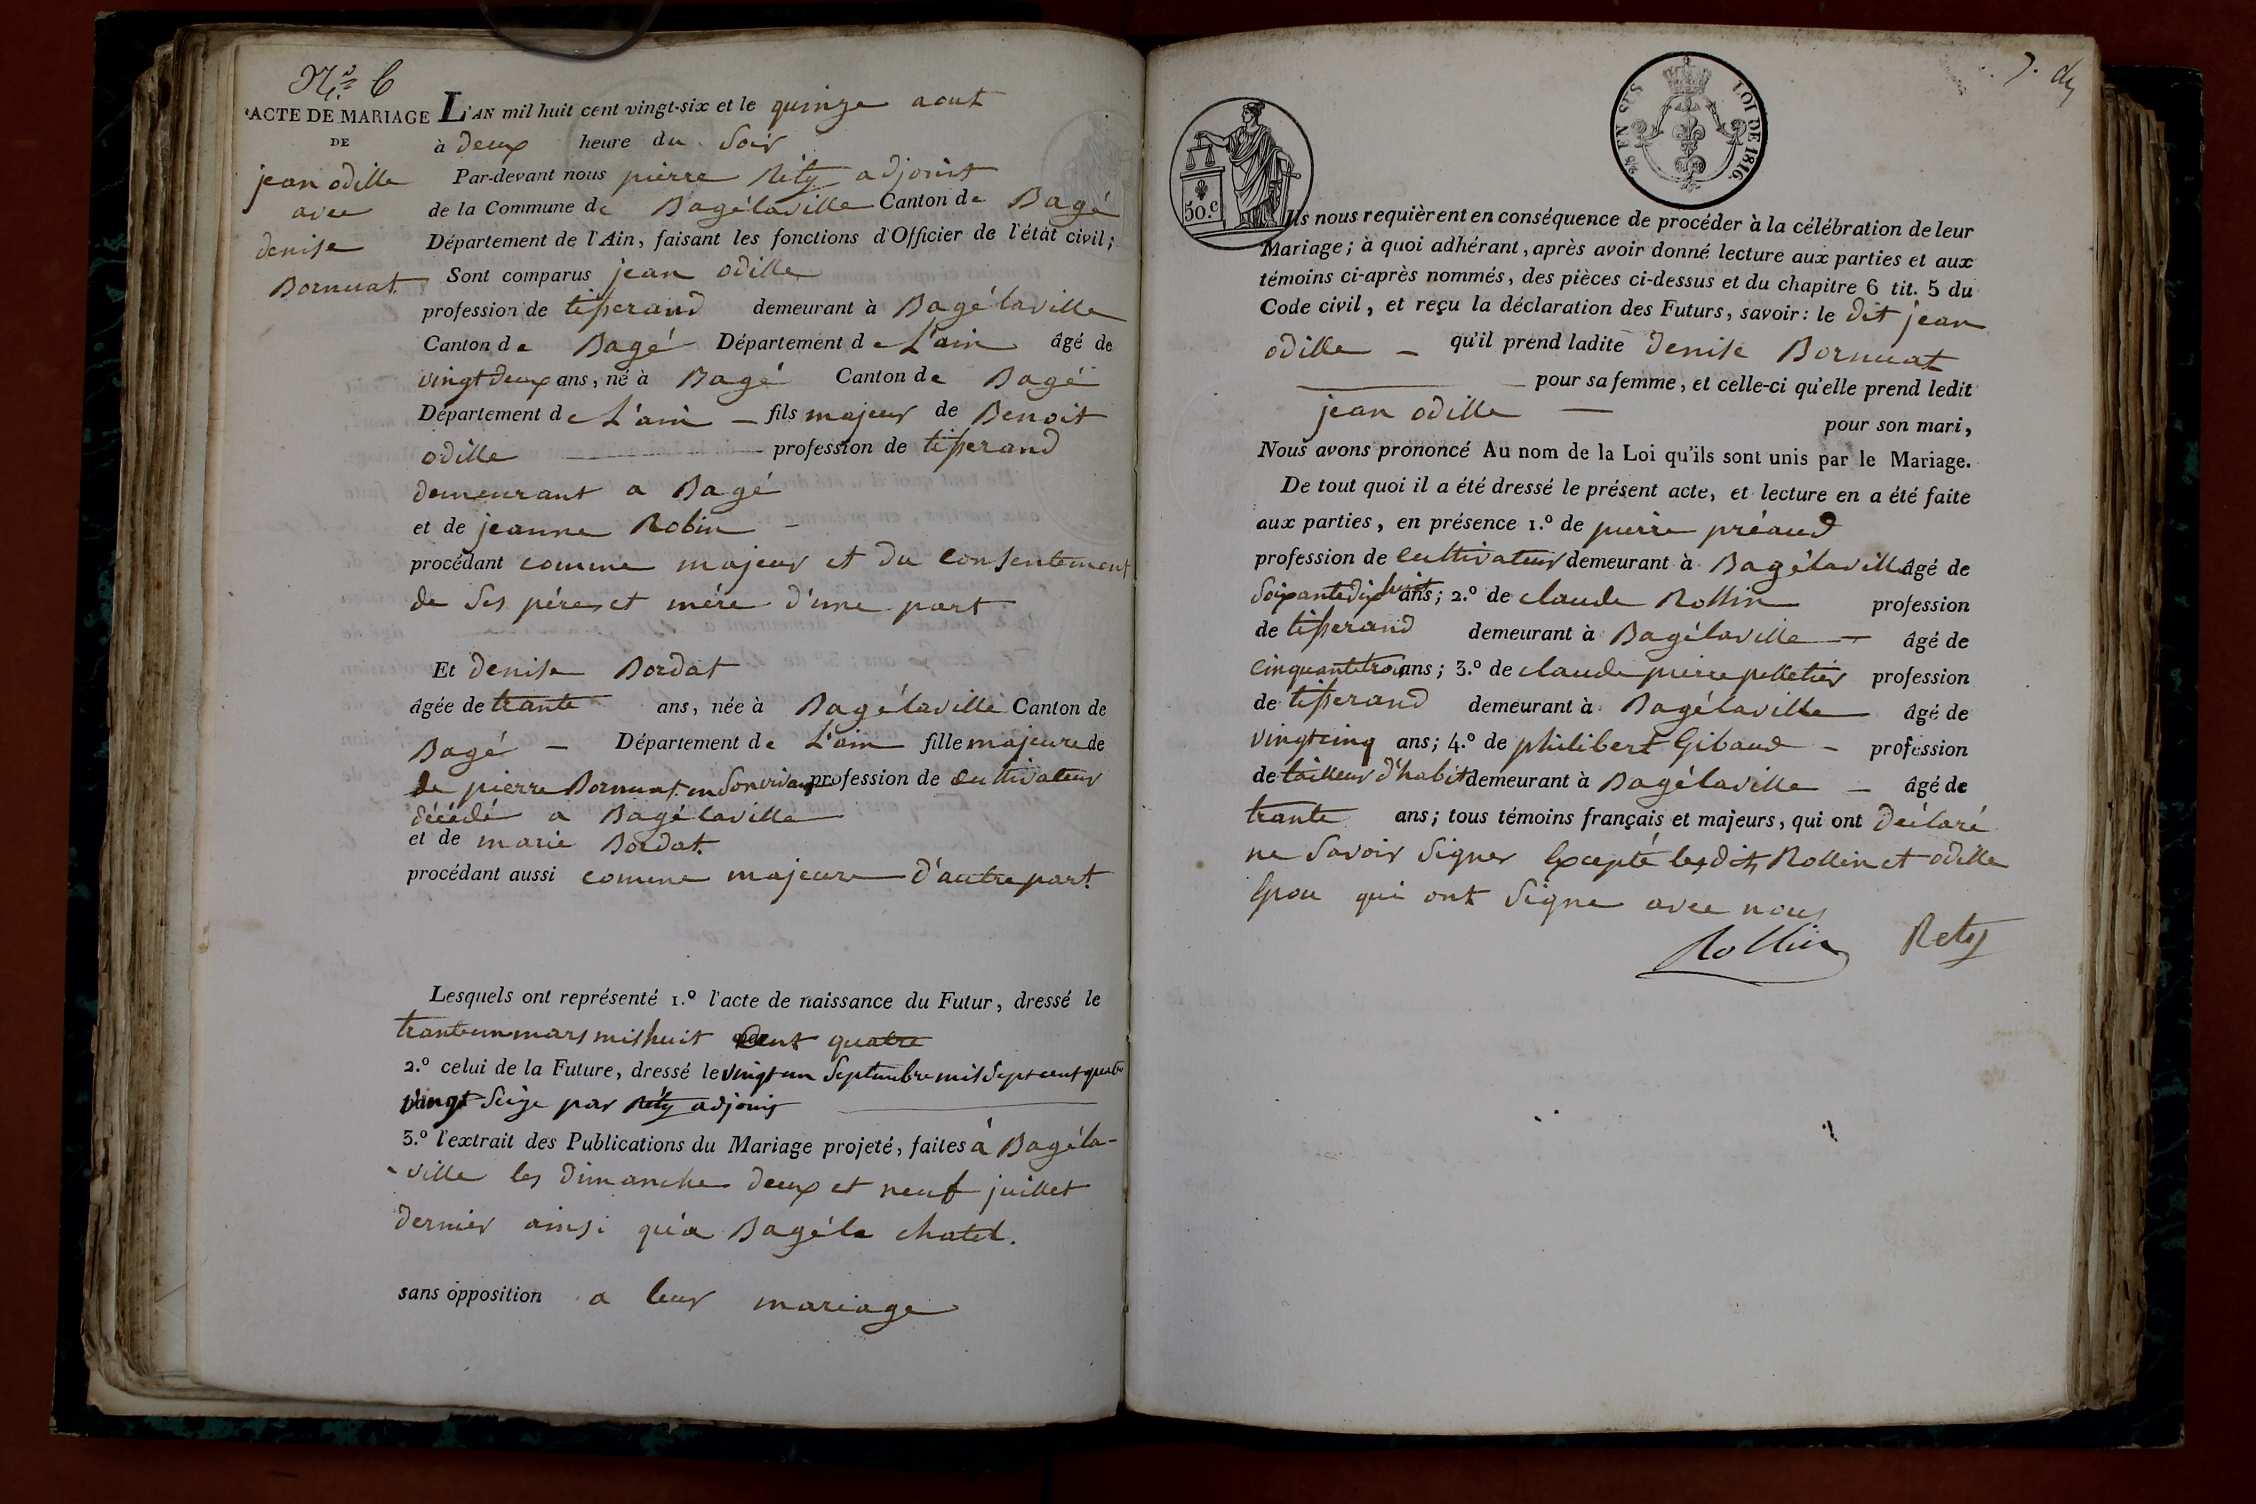 N.º 6
ACTE DE MARIAGE
DE
jean odille
avec
denise
Bornuat
L'AN mil huit cent vingt-six et le quinze aout
à deux heure du Soir
Par-devant nous pierre Réty adjoint
de la Commune de Bagélaville Canton de Bagé
Département de l'Ain, faisant les fonctions d'Officier de l'état civil;
Sont comparus jean odille
profession de tisserand demeurant à Bagélaville
Canton de Bagé Département de L'ain âgé de
vingt deux ans, né à Bagé Canton de Bagé
Département de L'ain — fils majeur de Benoit
odille — profession de tisserand
demeurant a Bagé
et de jeanne Robin —
procédant comme majeur et du consentement
de Ses pére et mére d'une part
Et denise Bordat
âgée de trante ans, née à Bagélaville Canton de
Bagé — Département de L'ain fille majeure de
de pierre Bornuat en Son vivant profession de cultivateur
décédé a Bagélaville
et de marie Bordat.
procédant aussi comme majeure d'autre part.
Lesquels ont représenté 1.º l'acte de naissance du Futur, dressé le
trante un mars mil huit cent quatre
2.º celui de la Future, dressé le vingt un Septembre mil Sept cent quatre
vingt Seize par Réty adjoint
3.º l'extrait des Publications du Mariage projeté, faites à Bagéla-
ville les dimanche deux et neuf juillet
dernier ainsi qu'a Bagéle chatel.
sans opposition a leur mariage
7. 
50.c
EN SUS
LOI DE 1816.
Ils nous requièrent en conséquence de procéder à la célébration de leur
Mariage; à quoi adhérant, après avoir donné lecture aux parties et aux
témoins ci-après nommés, des pièces ci-dessus et du chapitre 6 tit. 5 du
Code civil, et reçu la déclaration des Futurs, savoir: le dit jean
odille — qu'il prend ladite denise Bornuat
— pour sa femme, et celle-ci qu'elle prend ledit
jean odille —
pour son mari,
Nous avons prononcé Au nom de la Loi qu'ils sont unis par le Mariage.
De tout quoi il a été dressé le présent acte, et lecture en a été faite
aux parties, en présence 1.º de pierre préaud
profession de cultivateur demeurant à Bagélaville âgé de
Soixante dix huit ans; 2.º de claude Rollin profession
de tisserand demeurant à Bagélaville — âgé de
cinquante trois ans; 3.º de claude pierre pelletier profession
de tisserand demeurant à Bagélaville âgé de
vingt cinq ans; 4.º de philibert Gibaud — profession
de tailleur d'habit demeurant à Bagélaville — âgé de
trante ans; tous témoins français et majeurs, qui ont déclaré
ne Savoir Signer Excepté lesdits Rollin et odille
Epou qui ont Signe avec nous
Rollin Rety